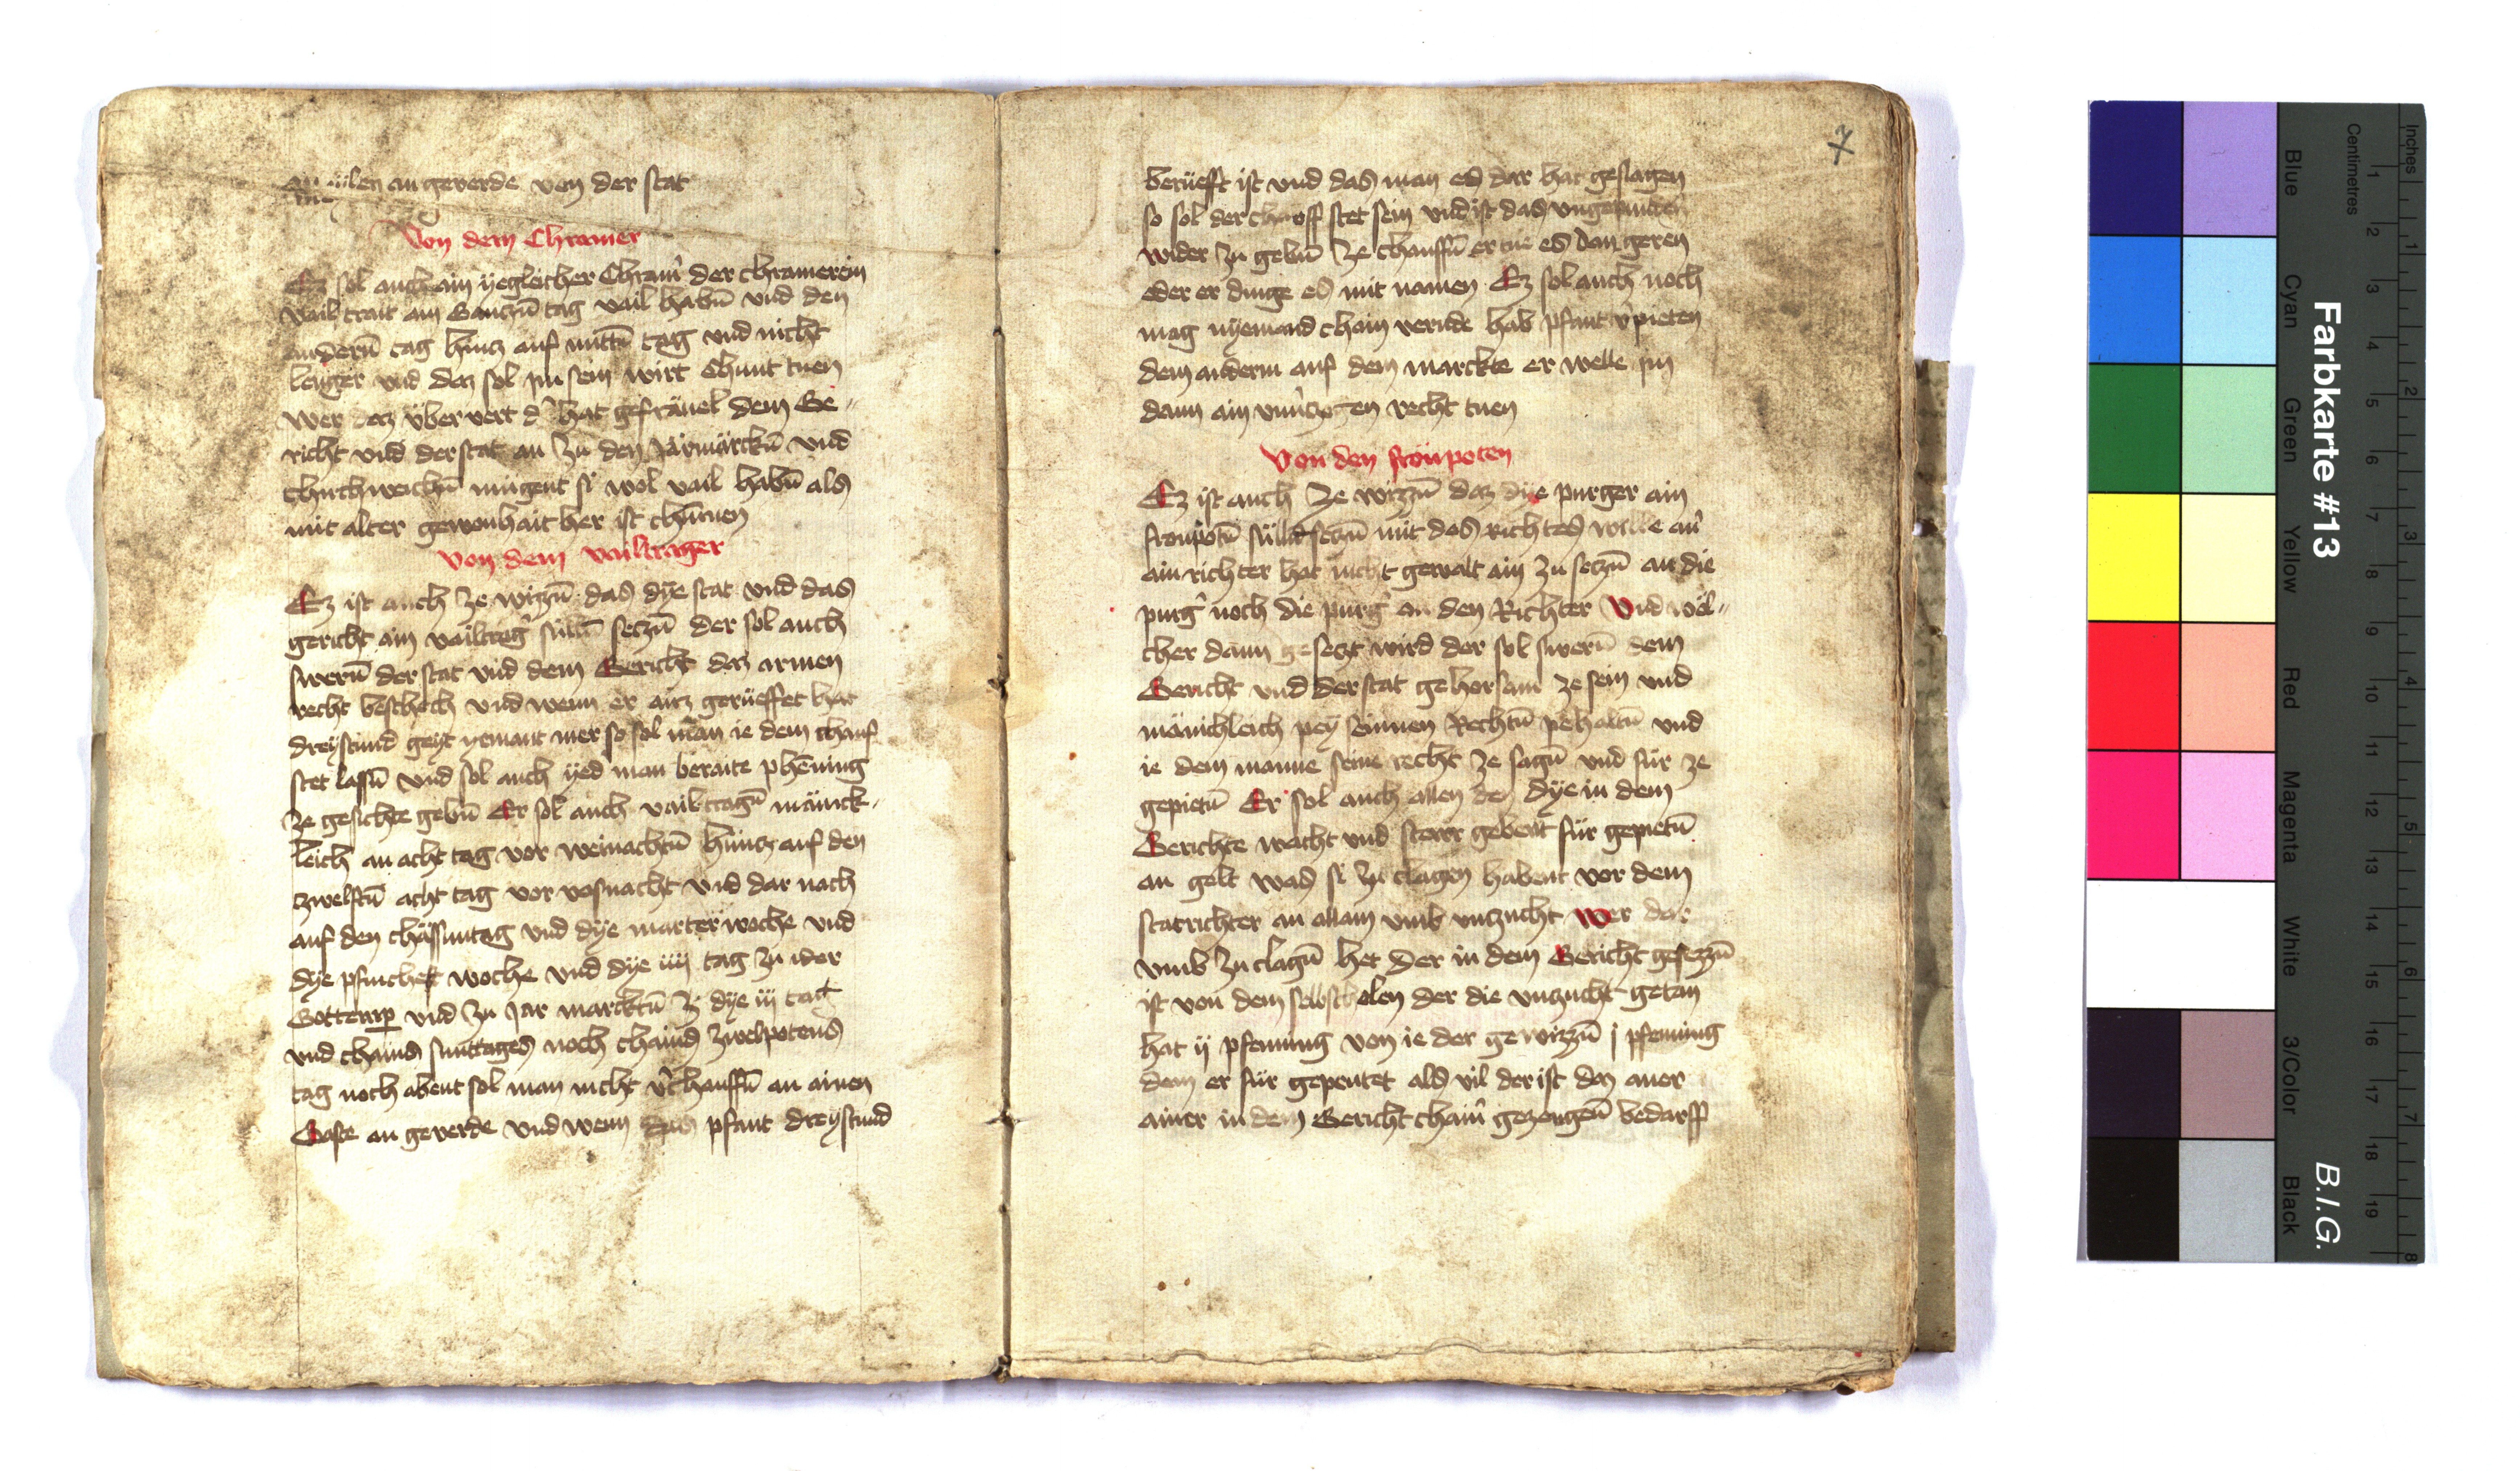 meilen an geverde von der stat
Von dem Chramer
Ez sol auch ain yegleicher Chram̄ der chramerein
vail trait ain Ganczn̄ tag vail habn̄ vnd den
andern̄ tag hincz auf mittn̄ tag vnd nicht
lenger vnd daz sol im sein wirt Chunt tuen
wer daz über vert d' hat gefräuel dem Ge-
richt vnd der stat an zu den Jarmärckn̄ vnd
chirchweichn̄ mügent si wol vail habn̄ als
mit alter gewonhait her ist chūmen
Von dem vailtrager
Ez ist auch ze wizzn̄ das dye stat vnd das
gericht ain vailtrag' sülln̄ seczn̄ der sol auch
swern̄ der stat vnd dem Gericht daz armen
recht beschech vnd wenn er ainz gerüeffet hat
dreystund geyt yemant mer so sol man ie dem chauf
stet lassn̄ vnd sol auch yed man beraite phēning
ze gesichte gebn̄ Er sol auch vail tragn̄ mänick-
leich an acht tag vor weinachtn̄ hincz auf den
zwelftn̄ acht tag vor vasnacht vnd dar nach
auf den chässuntag vnd dye marterwoche vnd
dye pfinchest woche vnd dye iiij tag zu ider
Gottemp̄ vnd zu Jar marcktn̄ ze dye iij tag
vnd chains suntages noch chains zwelpotens
tag noch abent sol man nicht v'chauffn̄ an ainen
Gaste an geverde vnd wenn das pfant dreystund
7
berüefft ist vnd das man es dar hat geslagen
so sol der chauff stet sein vnd ist das vngepunden
wider zu gebn̄ ze chauffn̄ er tue es dan geren
oder er dinge es mit namen Ez sol auch noch
mag nyemand chain veride hab pfant v'pieten
dem anderm auf dem marckte er welle im
dann ain recht tuen
Von den fronpoten
Ez ist auch ze wizzn̄ daz dye purger ain
fronpotn̄ sülln̄ seczn̄ mit des Richtes wille an̄
ain richter hat nicht gewalt ain zu seczn̄ an die
purg' noch die purg' an den Richter Vnd wel-
cher dann gesetzt wird der sol swern̄ dem
Gericht vnd der stat gehorsam ze sein vnd
mänichleich pey seinnen Rechtn̄ pehaltn̄ vnd
ie dem manne seine recht ze sagn̄ vnd für ze
gepietn̄ Er sol auch allen den dye in dem
Gerichte wacht vnd stewr gebent für gepietn̄
an gelt was si zu clagen habent vor dem
statrichter an allain vmb vnzucht Wer dar
vmb zu clagn̄ het der in dem Gericht gesezzn̄
ist von dem selbscholen der die vnzucht getan
hat ij pfenning von ie der gewizzn̄ j pfenning
dem er für gepeutet als vil der ist daz aner
ainer in dem Gericht chain̄ gezeugen̄ bedarff
Farbkarte #13
B.I.G.
Blue
Cyan
Green
Yellow
Red
Magenta
White
3/Color
Black
Centimetres
Inches
1 2 3 4 5 6 7 8 9 10 11 12 13 14 15 16 17 18 19
1 2 3 4 5 6 7 8